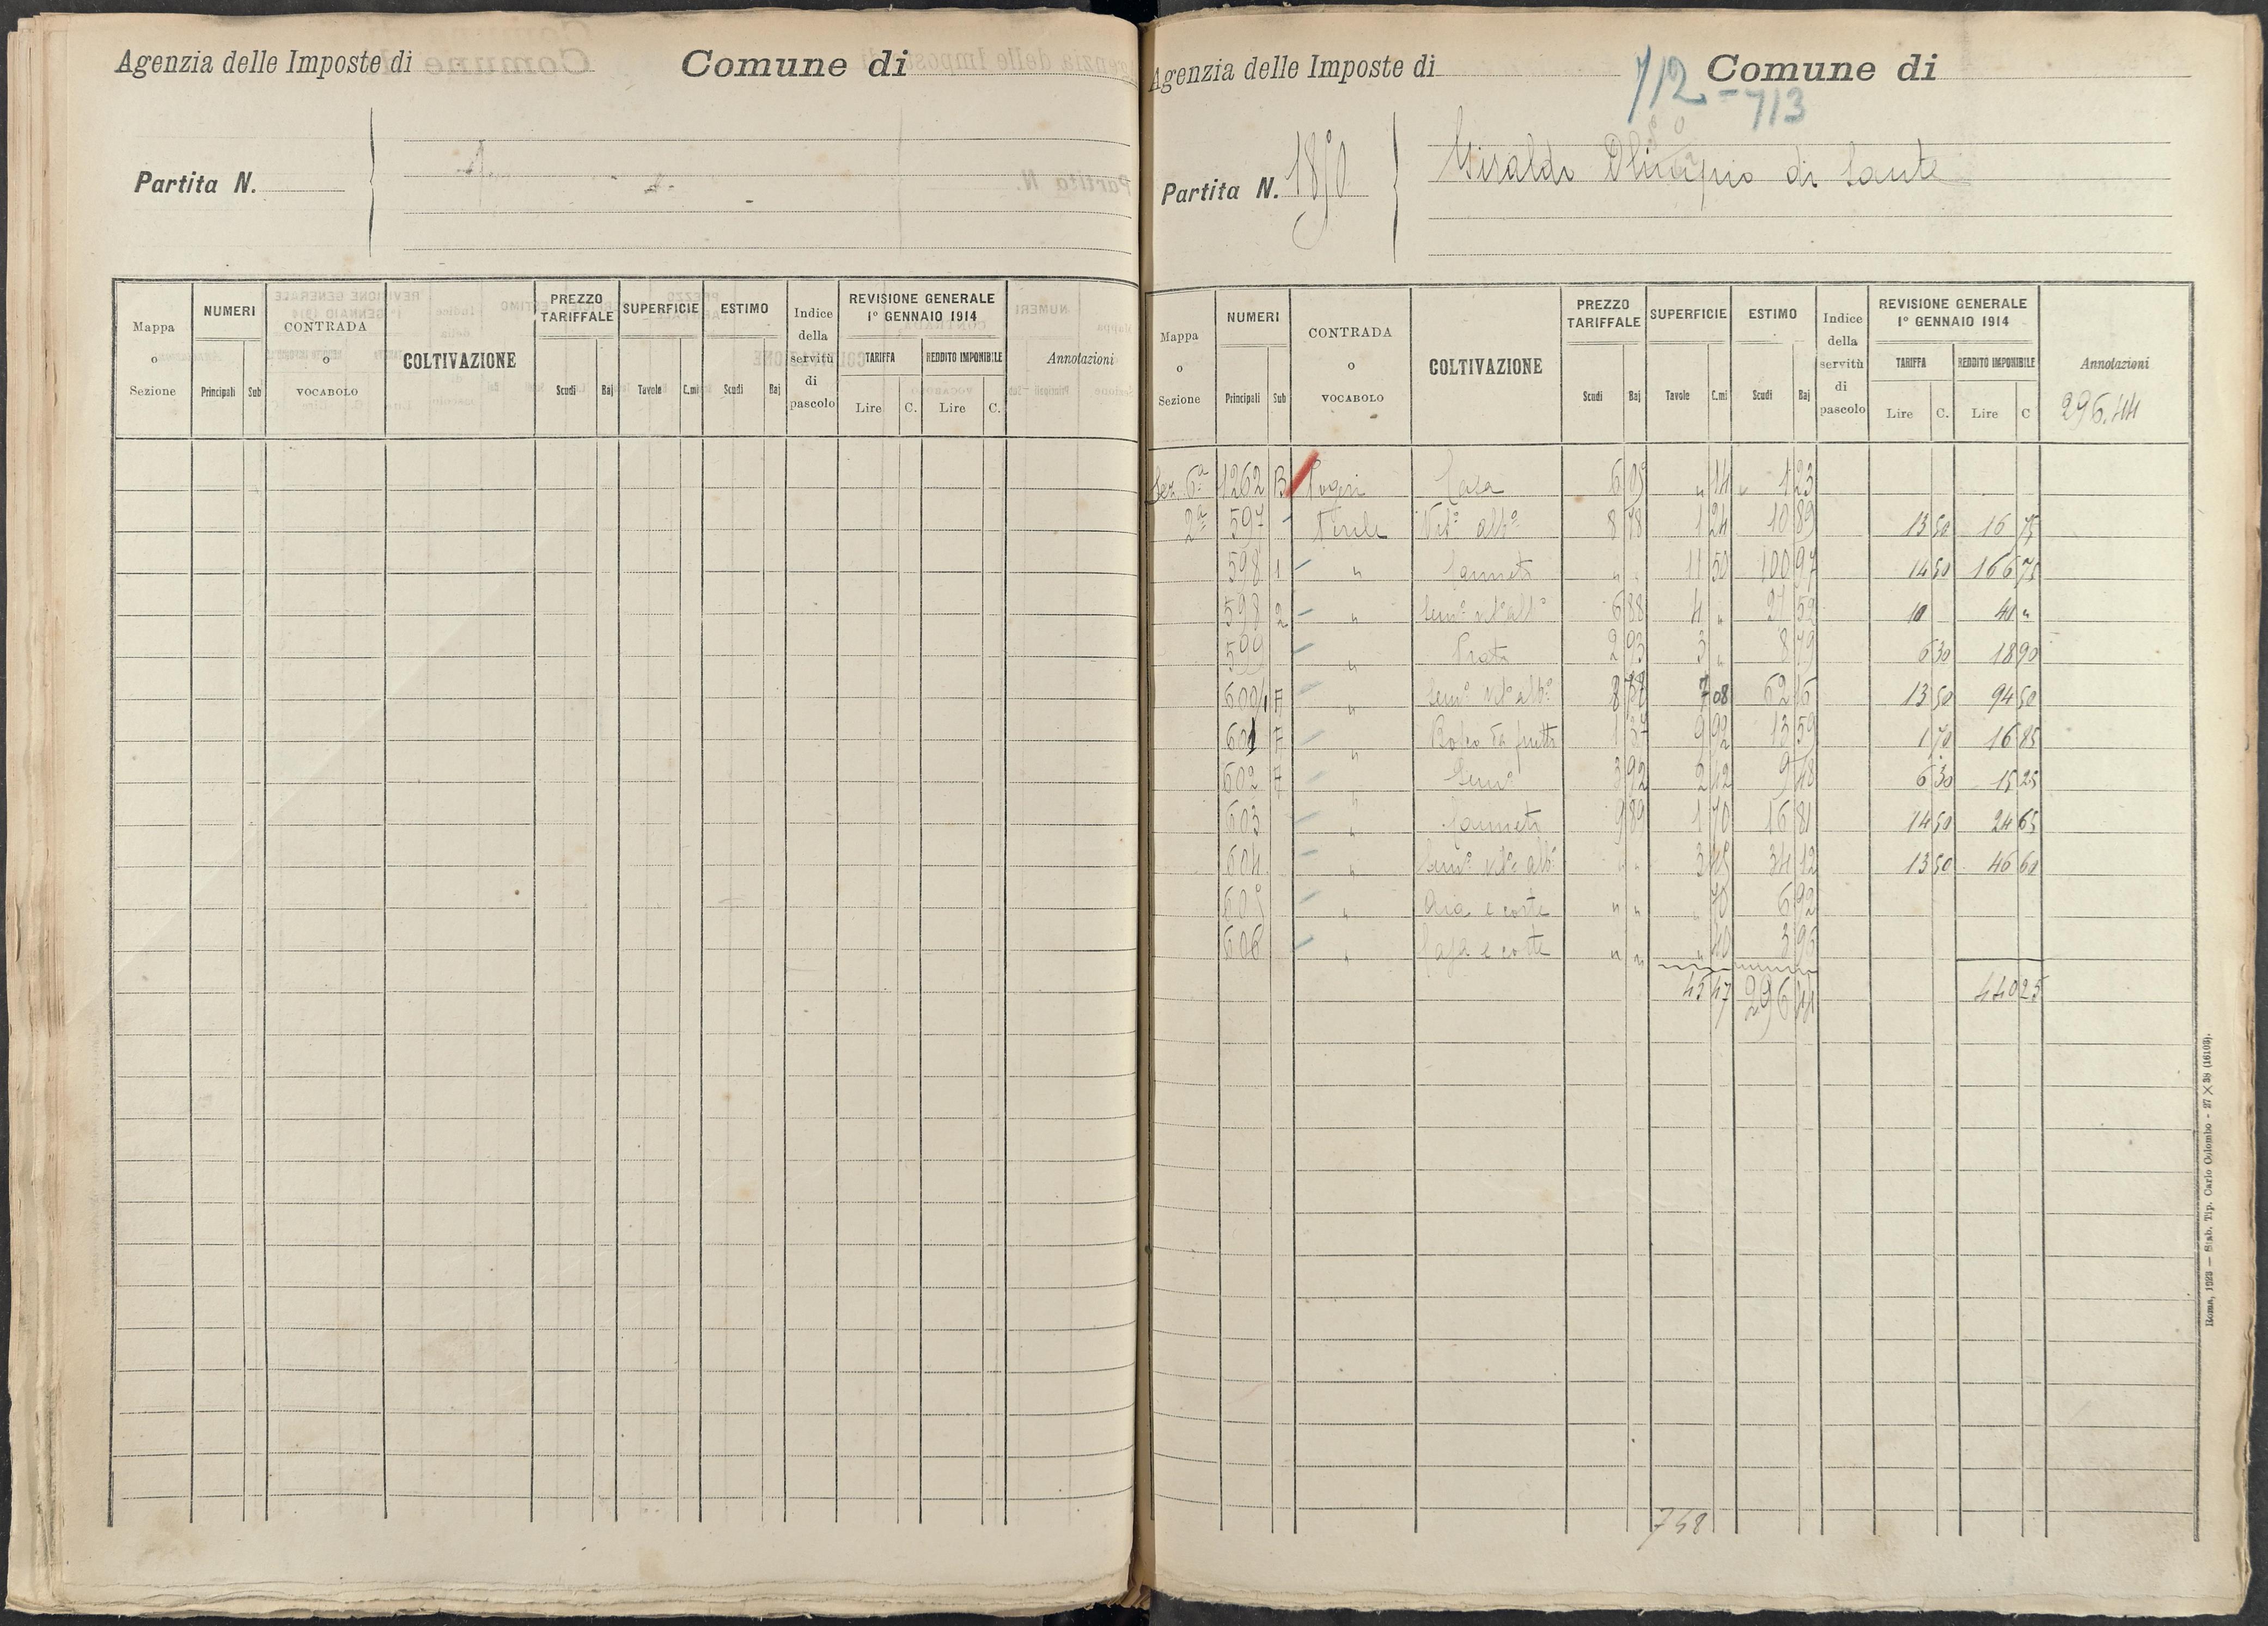 Agenzia delle Imposte di Comune di
Partita N.
Mappa o Sezione NUMERI Principali Sub CONTRADA o VOCABOLO COLTIVAZIONE PREZZO TARIFFALE Scudi Baj SUPERFICIE Tavole C.mi ESTIMO Scudi Baj Indice della servitù di pascolo REVISIONE GENERALE 1° GENNAIO 1914 TARIFFA Lire C. REDDITO IMPONIBILE Lire C. Annotazioni
Agenzia delle Imposte di Comune di
712 = 713
Partita N. 1850 Giraldi Olimpio di Sante
Mappa o Sezione NUMERI Principali Sub CONTRADA o VOCABOLO COLTIVAZIONE PREZZO TARIFFALE Scudi Baj SUPERFICIE Tavole C.mi ESTIMO Scudi Baj Indice della servitù di pascolo REVISIONE GENERALE 1° GENNAIO 1914 TARIFFA Lire C. REDDITO IMPONIBILE Lire C Annotazioni
296.44
Sez. 6ª 1262 B Casa " 14 1 23
2ª 597 Vit° alb° 8 78 1 24 10 89 13 50 16 75
598 1 " Canneto " " 11 50 100 97 14 50 166 75
598 2 " Sem° vit° alb° 6 88 4 " 27 52 10 40 "
599 " Prato 2 93 3 " 8 79 6 30 18 90
" Sem° vit° alb° 8 78 7 08 62 16 13 50 94 50
601 " Bosco da frutto 1 37 9 92 13 59 1 70 16 85
602 " Sem° 3 92 2 42 9 48 6 30 15 25
603 " Canneto 9 89 1 70 16 81 14 50 24 65
604 " Sem° vit° alb° " " 3 45 34 12 13 50 46 60
605 " Aia e corte " " " 70 6 92
606 " Casa e corte " " " 40 3 96
45 47 296 44 440 25
758
Roma, 1923 — Stab. Tip. Carlo Colombo - 27 × 38 (16103).